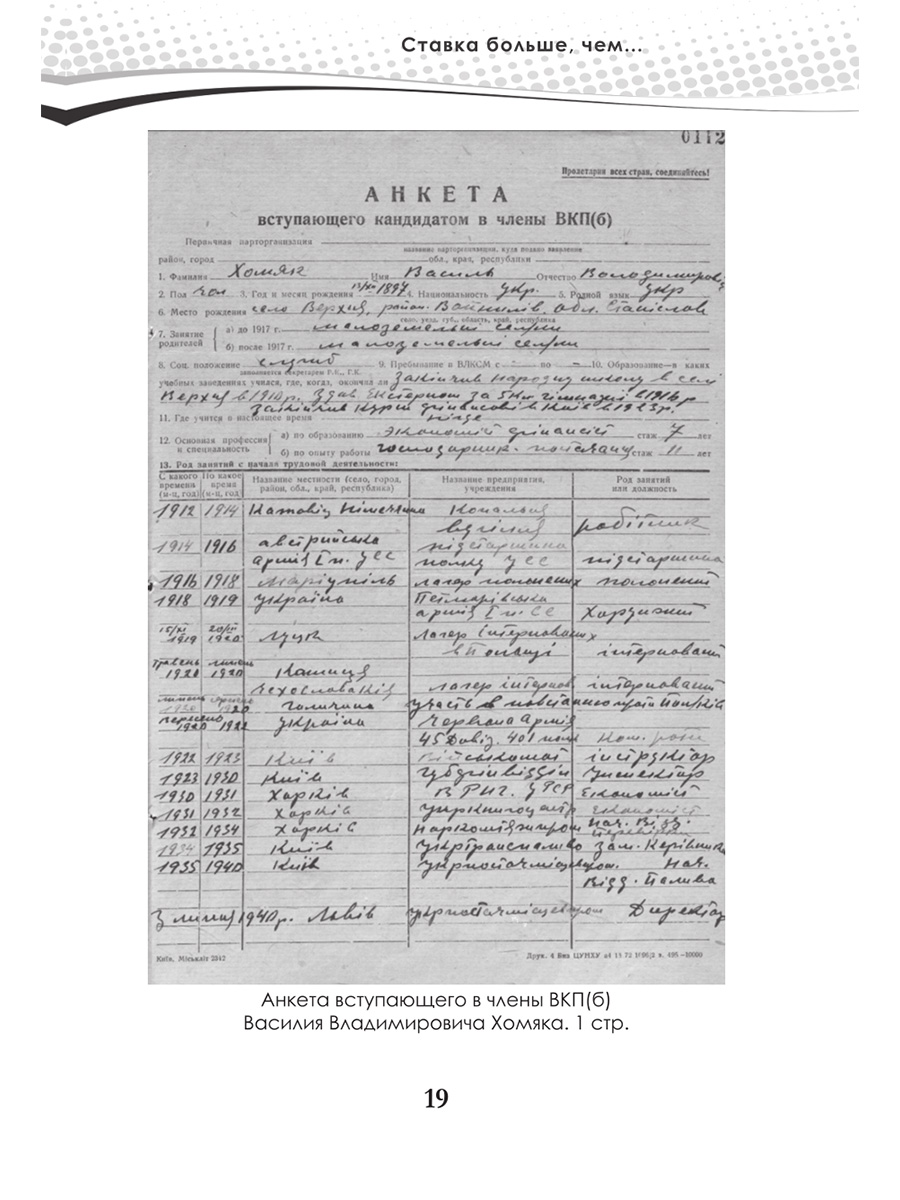 Ставка больше, чем...
0112
Пролетарии всех стран, соединяйтесь!
АНКЕТА
вступающего кандидатом в члены ВКП(б)
Первичная парторганизация
название парторганизации, куда подано заявление
район, город обл., край, республики
1. Фамилия Хомяк Имя Василь Отчество Володимирович
2. Пол чол 3. Год и месяц рождения 1897 4. Национальность укр. 5. Родной язык укр
6. Место рождения село Верхня, район. Войнилів, обл. Станіслав
село, уезд, губ., область, край, республика
7. Занятие родителей а) до 1917 г. малоземельні селяни
б) после 1917 г. малоземельні селяни
8. Соц. положение служб 9. Пребывание в ВЛКСМ с - по - 10. Образование—в каких
заполняется секретарем Р.К., Г.К.
учебных заведениях учился, где, когда, окончил ли Закінчив народну школу в селі
Верхня в 1910 р. Здав екстерном за 5 кл. гімназії в 1916 р
Закінчив курси фінансові в Київі в 1923 р.
11. Где учится в настоящее время нігде
12. Основная профессия и специальность а) по образованию економіст фінансист стаж 7 лет
б) по опыту работы господарник. стаж 11 лет
13. Род занятий с начала трудовой деятельности:
С какого времени (м-ц, год) По какое время (м-ц, год) Название местности (село, город, район, обл., край, республика) Название предприятия, учреждения Род занятий или должность
1912 1914 Катовіц Німеччина Копальня вугілля робітник
1914 1916 австрійська армія І п. УСС підстаршина полку УСС підстаршина
1916 1918 Маріупіль лагер полонених полонений
1918 1919 Україна Петлюрівська армія І п. СС Хорунжий
15/XI 1919 1920 Луцк лагер інтернованих в Польщі інтернований
травень 1920 липень 1920 Кошиця Чехословакія лагер інтернов інтернований
липень 1920 1920 Галичина участь в повстанню проти Поляків
1920 1922 Україна Червона Армія 45 Дивіз. 401 полк Ком. роти
1922 1923 Київ Військомат інструктор
1923 1930 Київ Губфінвідділ Інспектор
1930 1931 Харків В Р Н Г. УРСР Економіст
1931 1932 Харків Укркнигоцентр Економіст
1932 1934 Харків Нач. Відд.
1934 1935 Київ Укртранспаливо Зам. Керівника
1935 1940 Київ Укрпостачмісцевпром. Нач. Відд. Палива
З липня 1940 р. Львів Укрпостачмісцевпром Директор
Київ. Міськліт 2342
Друк.
Анкета вступающего в члены ВКП(б)
Василия Владимировича Хомяка. 1 стр.
19